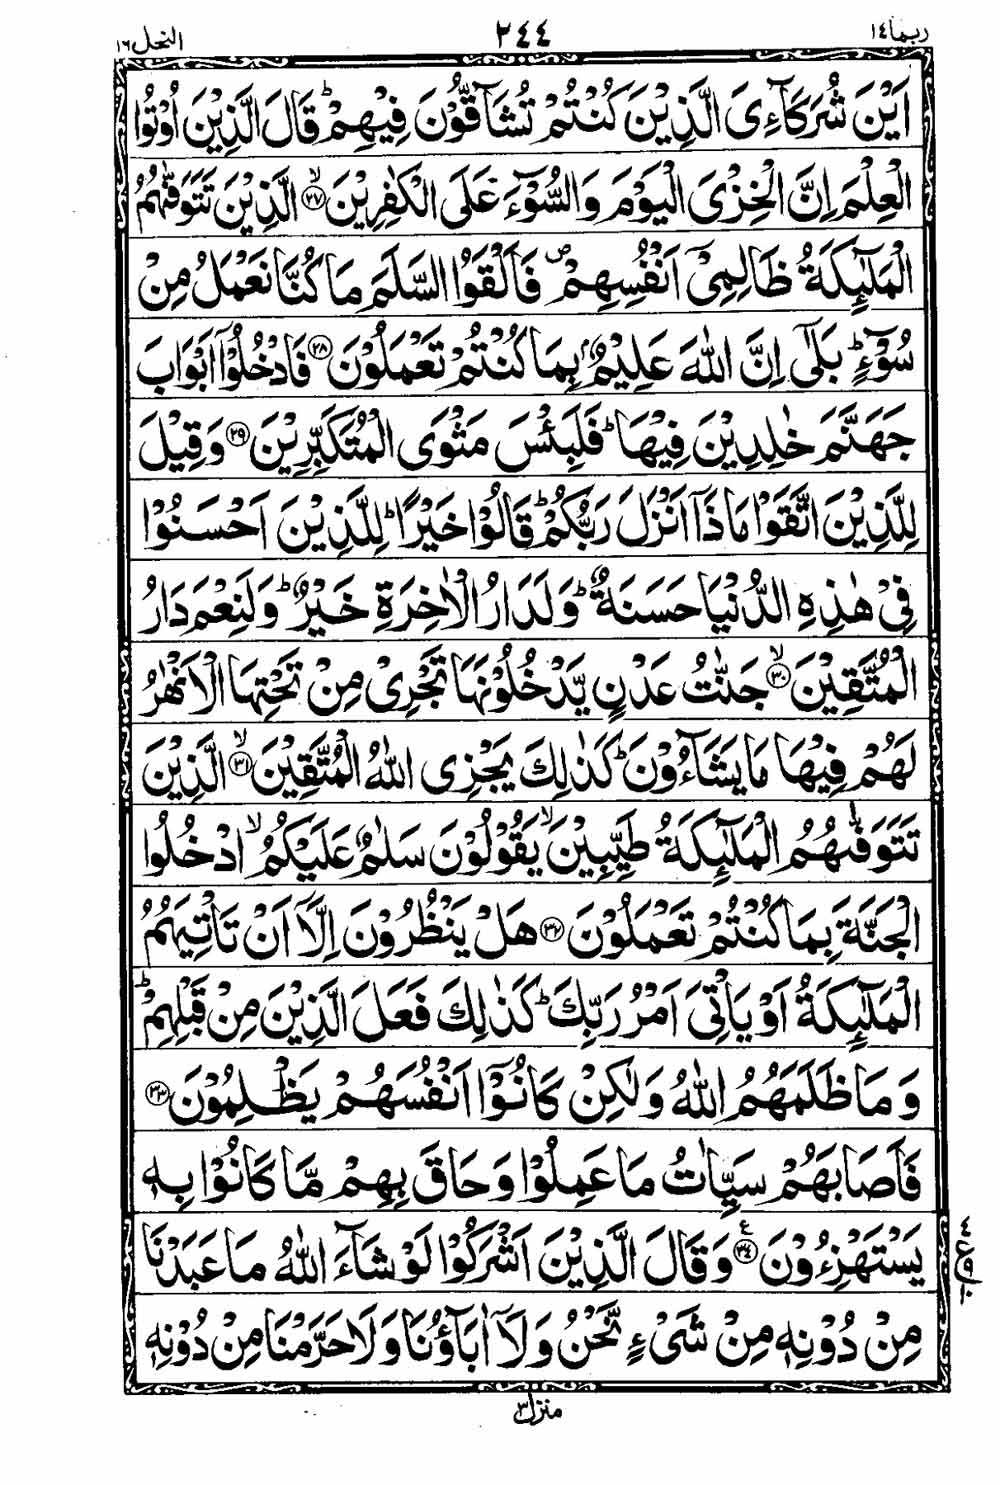 ربما ١٤ ٢٤٤ النحل ١٦
اَيْنَ شُرَكَآءِىَ الَّذِيْنَ كُنْتُمْ تُشَآقُّوْنَ فِيْهِمْ ؕ قَالَ الَّذِيْنَ اُوْتُوا
الْعِلْمَ اِنَّ الْخِزْىَ الْيَوْمَ وَالسُّوْٓءَ عَلَى الْكٰفِرِيْنَ ۙ‏﴿۲۷﴾ الَّذِيْنَ تَتَوَفّٰٮهُمُ
الْمَلٰٓئِكَةُ ظَالِمِىْۤ اَنْفُسِهِمْ ۖ فَاَلْقَوُا السَّلَمَ مَا كُنَّا نَعْمَلُ مِنْ
سُوْٓءٍ ؕ بَلٰٓى اِنَّ اللّٰهَ عَلِيْمٌۢ بِمَا كُنْتُمْ تَعْمَلُوْنَ ﴿۲۸﴾ فَادْخُلُوْۤا اَبْوَابَ
جَهَنَّمَ خٰلِدِيْنَ فِيْهَا ؕ فَلَبِئْسَ مَثْوَى الْمُتَكَبِّرِيْنَ ﴿۲۹﴾ وَقِيْلَ
لِلَّذِيْنَ اتَّقَوْا مَاذَاۤ اَنْزَلَ رَبُّكُمْ ؕ قَالُوْا خَيْرًا ؕ لِلَّذِيْنَ اَحْسَنُوْا
فِىْ هٰذِهِ الدُّنْيَا حَسَنَةٌ ؕ وَلَدَارُ الْاٰخِرَةِ خَيْرٌ ؕ وَلَنِعْمَ دَارُ
الْمُتَّقِيْنَ ۙ‏﴿۳۰﴾ جَنّٰتُ عَدْنٍ يَّدْخُلُوْنَهَا تَجْرِىْ مِنْ تَحْتِهَا الْاَنْهٰرُ
لَهُمْ فِيْهَا مَا يَشَآءُوْنَ ؕ كَذٰلِكَ يَجْزِى اللّٰهُ الْمُتَّقِيْنَ ۙ‏﴿۳۱﴾ الَّذِيْنَ
تَتَوَفّٰٮهُمُ الْمَلٰٓئِكَةُ طَيِّبِيْنَ ۙ يَقُوْلُوْنَ سَلٰمٌ عَلَيْكُمُ ۙ ادْخُلُوا
الْجَنَّةَ بِمَا كُنْتُمْ تَعْمَلُوْنَ ﴿۳۲﴾ هَلْ يَنْظُرُوْنَ اِلَّاۤ اَنْ تَاْتِيَهُمُ
الْمَلٰٓئِكَةُ اَوْ يَاْتِىَ اَمْرُ رَبِّكَ ؕ كَذٰلِكَ فَعَلَ الَّذِيْنَ مِنْ قَبْلِهِمْ ؕ
وَمَا ظَلَمَهُمُ اللّٰهُ وَلٰكِنْ كَانُوْۤا اَنْفُسَهُمْ يَظْلِمُوْنَ ﴿۳۳﴾
فَاَصَابَهُمْ سَيِّاٰتُ مَا عَمِلُوْا وَحَاقَ بِهِمْ مَّا كَانُوْا بِهٖ
يَسْتَهْزِءُوْنَ ﴿۳۴﴾ ع وَقَالَ الَّذِيْنَ اَشْرَكُوْا لَوْ شَآءَ اللّٰهُ مَا عَبَدْنَا
مِنْ دُوْنِهٖ مِنْ شَىْءٍ نَّحْنُ وَلَاۤ اٰبَآؤُنَا وَلَا حَرَّمْنَا مِنْ دُوْنِهٖ
منزل ٣